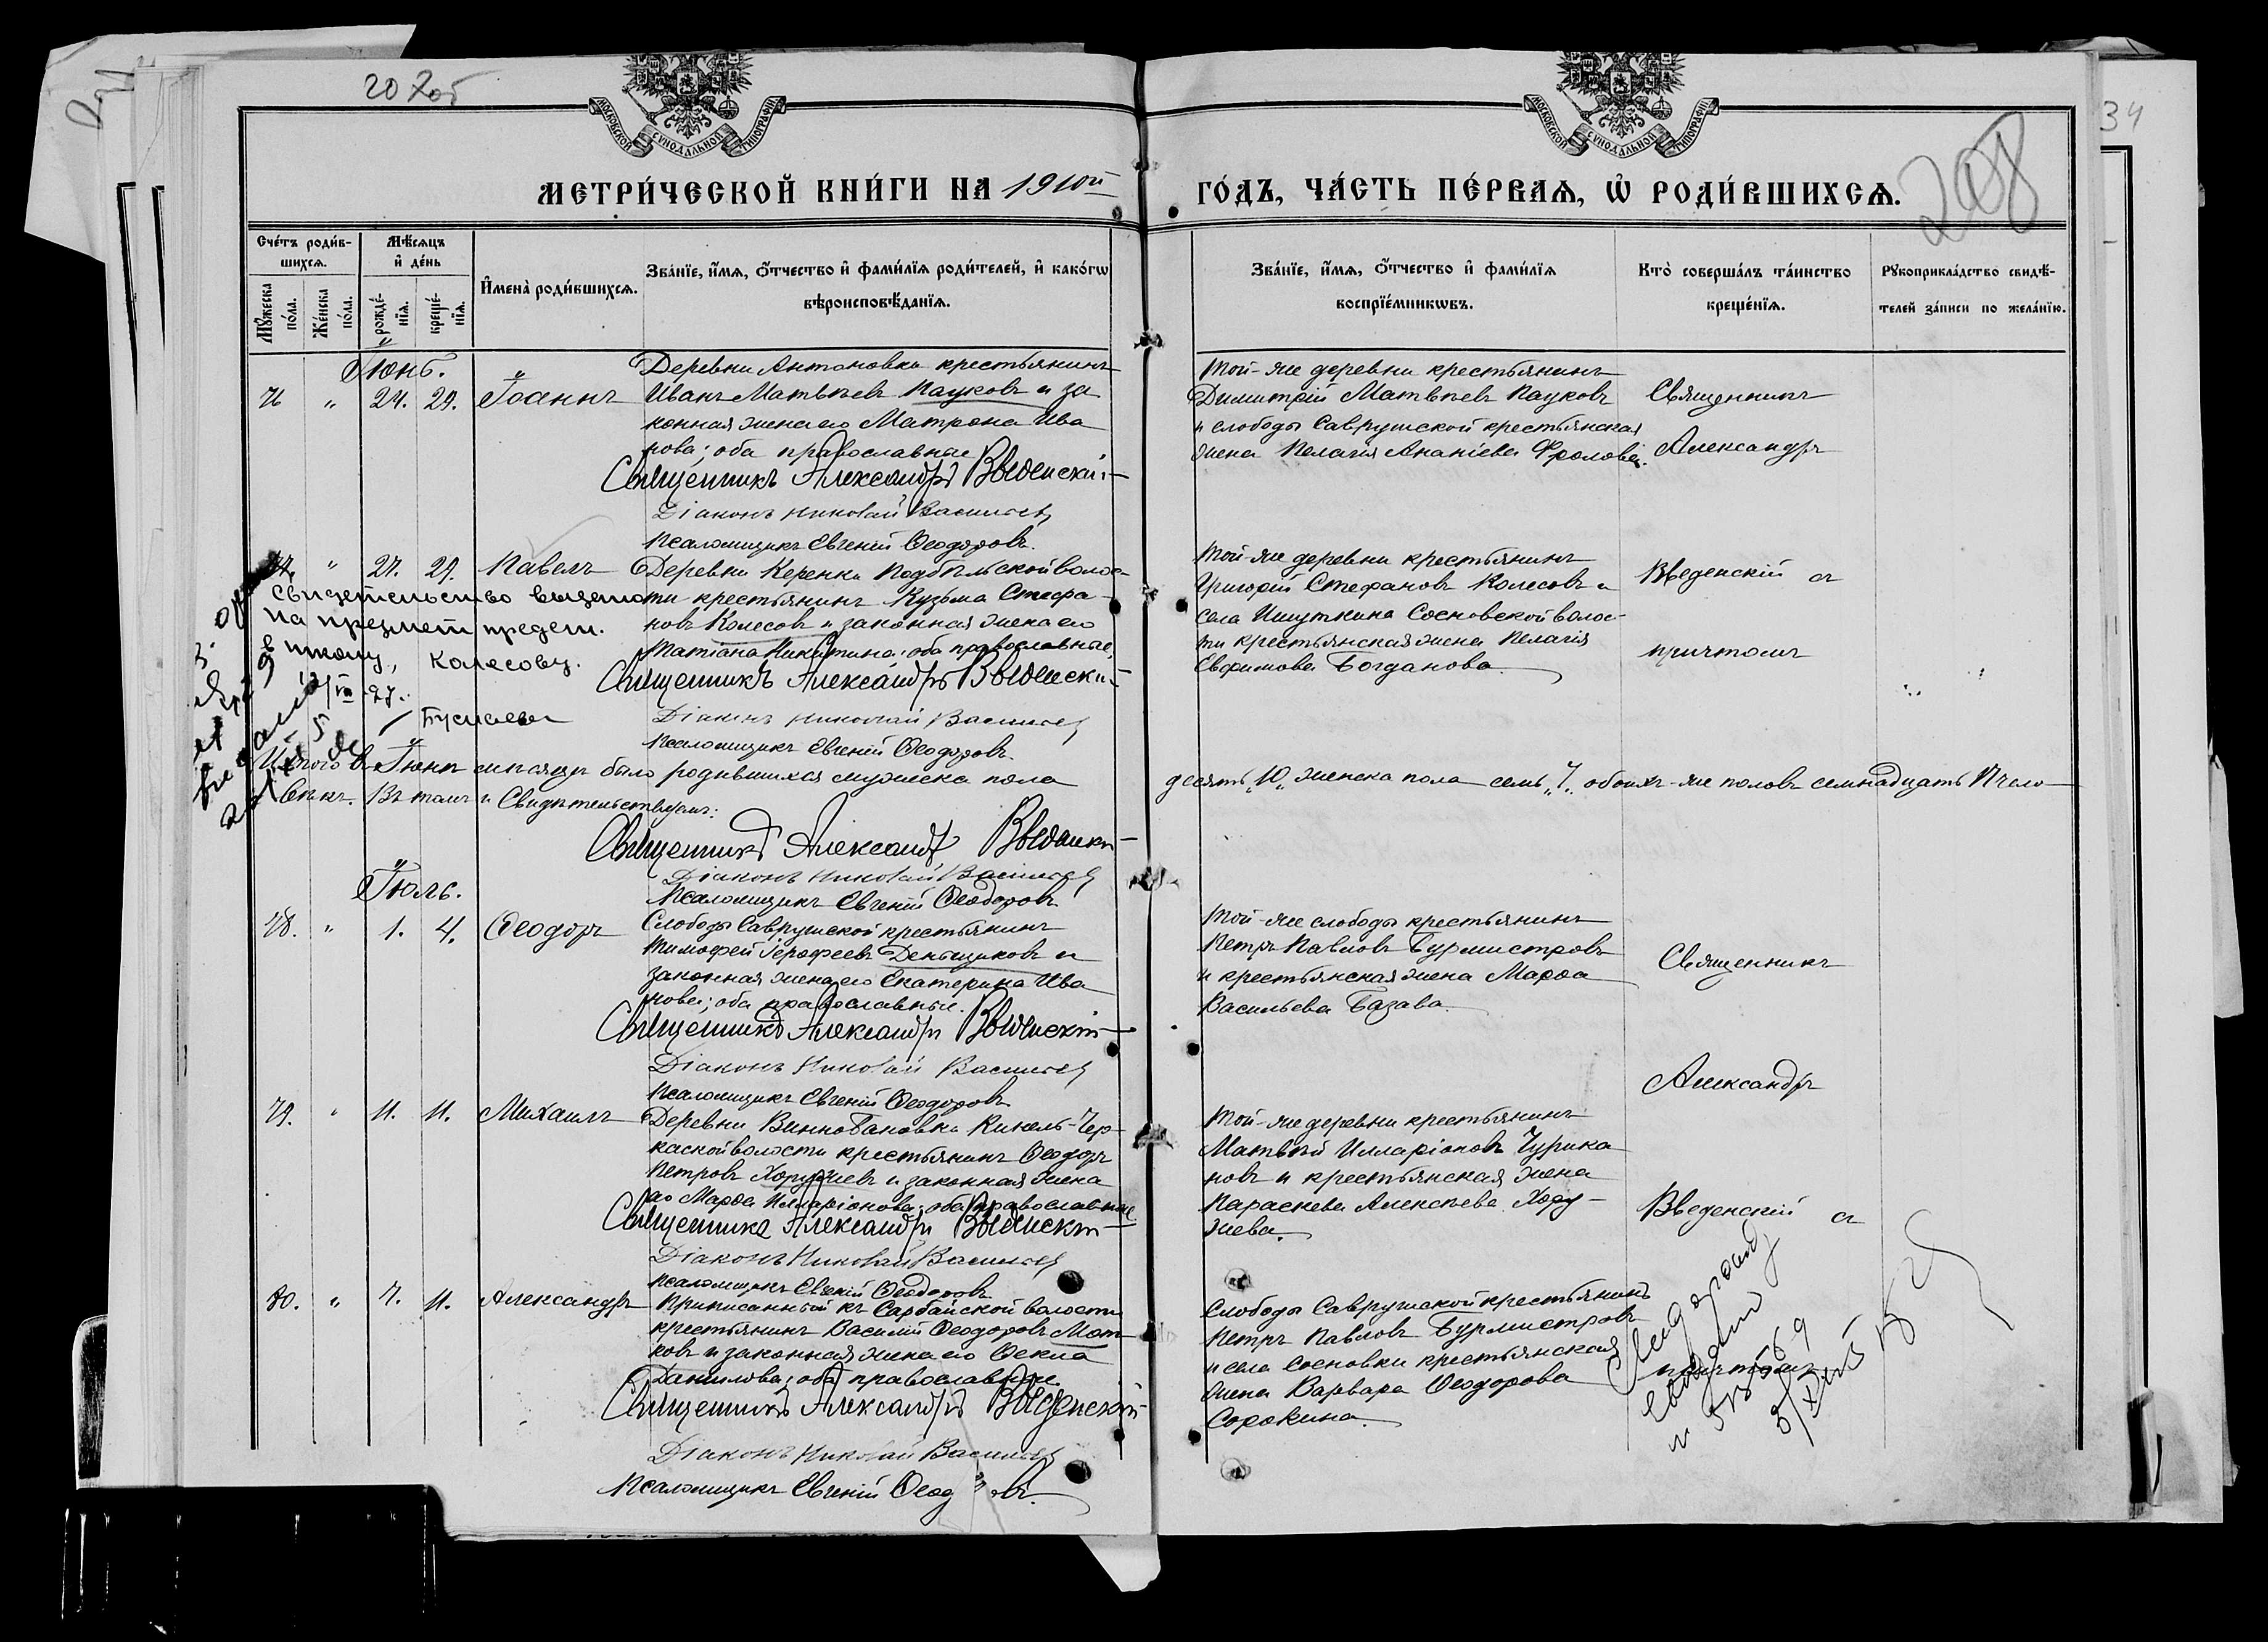 208
34
МОСКОВСКОЙ СѴНОДАЛЬНОЙ ТИПОГРАФІИ
МОСКОВСКОЙ СѴНОДАЛЬНОЙ ТИПОГРАФІИ
МЕТРИ́ЧЕСКОЙ КНИ́ГИ НА 1910й ГО́ДЪ, ЧА́СТЬ ПЕ́РВАѦ, Ѡ҆ РОДИ́ВШИХСѦ.
Сче́тъ роди́в-
шихсѧ.
Мꙋ́жеска по́ла.
Же́нска по́ла.
Мѣ́сѧцъ
и҆ де́нь
рожде́-
нїѧ.
креще́-
нїѧ.
И҆мена̀ роди́вшихсѧ.
Зва́нїе, и҆́мѧ, ѻ҆́тчество и҆ фами́лїѧ роди́телей, и҆ како́гѡ
вѣроисповѣ́данїѧ.
Зва́нїе, и҆́мѧ, ѻ҆́тчество и҆ фами́лїѧ
воспрїе́мникѡвъ.
Кто̀ соверша́лъ та́инство
креще́нїѧ.
Рꙋкоприкла́дство свидѣ́-
телей за́писи по жела́нїю.
Іюнь.
76 „ 24. 29. Іоаннъ
Деревни Антоновки крестьянинъ
Иванъ Матвѣевъ Пауковъ и за
конная жена его Матрона Ива
нова; оба православные
Священникъ Александръ Введенскій
Діаконъ Николай Васильевъ
Псаломщикъ Евгеній Ѳеодоровъ.
Той-же деревни крестьянинъ
Димитрій Матвѣевъ Пауковъ
и слободы Саврушской крестьянская
жена Пелагія Ананіева Фролова.
Священникъ
Александръ
77. „ 27. 29. Павелъ
Деревни Керенки Подбѣльской волос-
ти крестьянинъ Кузьма Стефа-
новъ Колесовъ и законная жена его
Татіана Никитина; оба православные.
Священникъ Александръ Введенскій
Діаконъ Николай Васильевъ
Псаломщикъ Евгеній Ѳеодоровъ.
Той-же деревни крестьянинъ
Григорій Стефановъ Колесовъ и
села Ишуткина Сосновской волос-
ти крестьянская жена Пелагія
Евфимова Богданова.
Введенскій съ
причтомъ
Свидетельство выдано
на предмет предст.
в школу, Колесову.
Итого въ Іюнѣ мѣсяцѣ было родившихся мужеска пола десять „10„ женска пола семь „7„ обоихъ-же половъ семнадцать 17 чело
вѣкъ. Въ томъ и Свидѣтельствуемъ:
Священникъ Александръ Введенскій
Діаконъ Николай Васильевъ
Псаломщикъ Евгеній Ѳеодоровъ
Іюль.
78. „ 1. 4. Ѳеодоръ
Слободы Саврушской крестьянинъ
Тимофей Іерофеевъ Деньщиковъ и
законная жена его Екатерина Ива
нова; оба православные.
Священникъ Александръ Введенскій
Діаконъ Николай Васильевъ
Псаломщикъ Евгеній Ѳеодоровъ
Той-же слободы крестьянинъ
Петръ Павловъ Бурмистровъ
и крестьянская жена Марѳа
Васильева Базава.
Священникъ
Александръ
79. „ 11. 11. Михаилъ
Деревни Винно Бановки Кинель-Чер-
каской волости крестьянинъ Ѳеодоръ
Петровъ Хоружевъ и законная жена
его Марѳа Илларіонова; оба православные.
Священникъ Александръ Введенскій
Діаконъ Николай Васильевъ
Псаломщикъ Евгеній Ѳеодоровъ
Той-же деревни крестьянинъ
Матвѣй Илларіоновъ Чурика
новъ и крестьянская жена
Параскева Алексѣева Хору-
жева.
Введенскій съ
80. „ 7. 11. Александръ
Приписанный къ Сарбайской волости
крестьянинъ Василій Ѳеодоровъ Мот-
ковъ и законная жена его Ѳекла
Данилова; оба православные.
Священникъ Александръ Введенскій
Діаконъ Николай Васильевъ
Псаломщикъ Евгеній Ѳеод овъ.
Слободы Саврушской крестьянинъ
Петръ Павловъ Бурмистровъ
и села Сосновки крестьянская
жена Варвара Ѳеодорова
Сорокина.
причтомъ